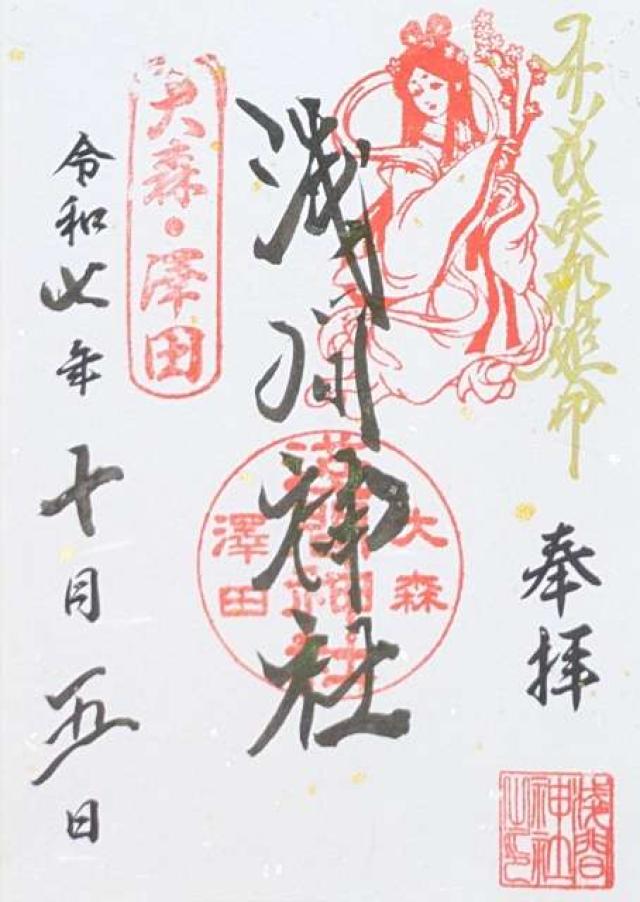 木ノ花咲耶姫命
奉拝
淺間
神社
之印
浅間神社
大森
浅間神社
澤田
大森・澤田
令和七年十月五日